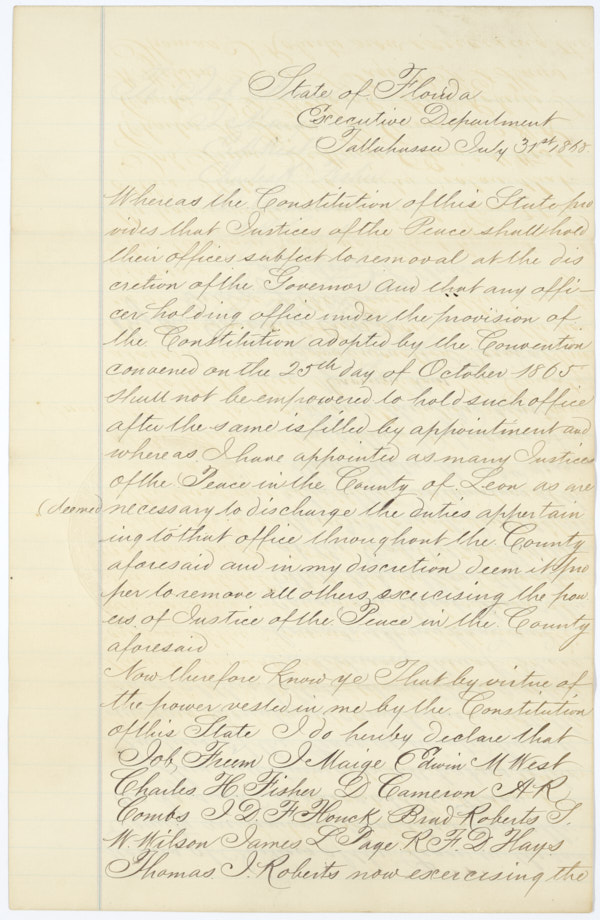 State of Florida
Executive Department
Tallahassee July 31st 1868
Whereas the Constitution of this State pro
vides that Justices of the Peace shall hold
their offices subject to removal at the dis
cretion of the Governor and that any offi-
cer holding office under the provision of
the Constitution adopted by the Convention
convened on the 25th day of October 1865
shall not be empowered to hold such office
after the same is filled by appointment and
whereas I have appointed as many Justices
of the Peace in the County of Leon as are
(deemed necessary to discharge the duties appertain
ing to that office throughout the County
aforesaid and in my discretion deem it pro
per to remove all others exercising the pow
ers of Justice of the Peace in the County
aforesaid
Now therefore Know ye That by virtue of
the power vested in me by the Constitution
of this State I do hereby declare that
Job, Freem I Maige Edwin M West
Charles H Fisher D Cameron A R
Combs J. D. F Houck, Brad Roberts S.
W. Wilson James L Page R F. D. Hays
Thomas J. Roberts now exercising the